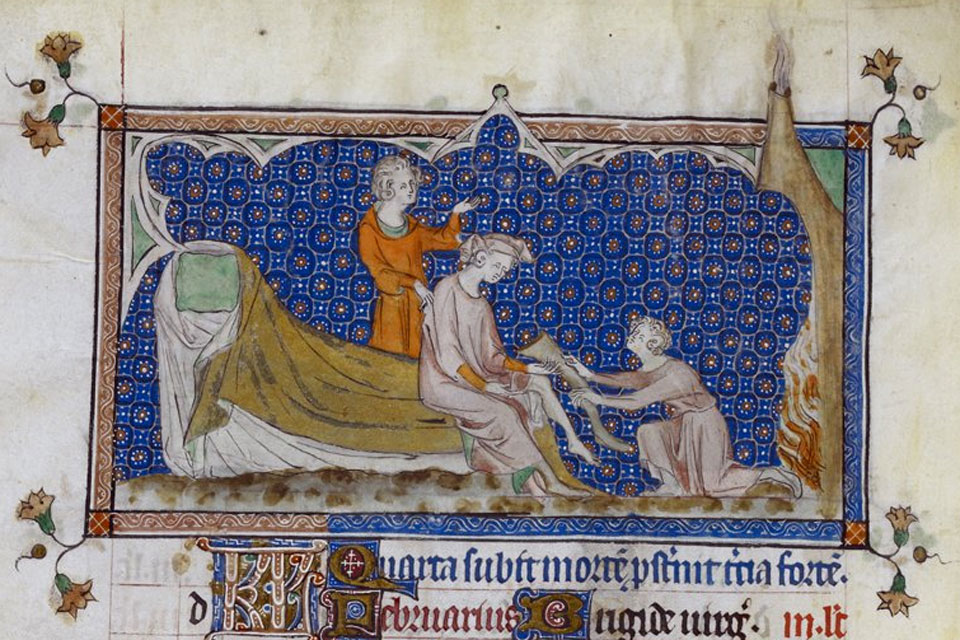 KL Quarta subit mortē pſtnit tcia fortē.
d Februarius Brigide uirg̃. m.lc̄